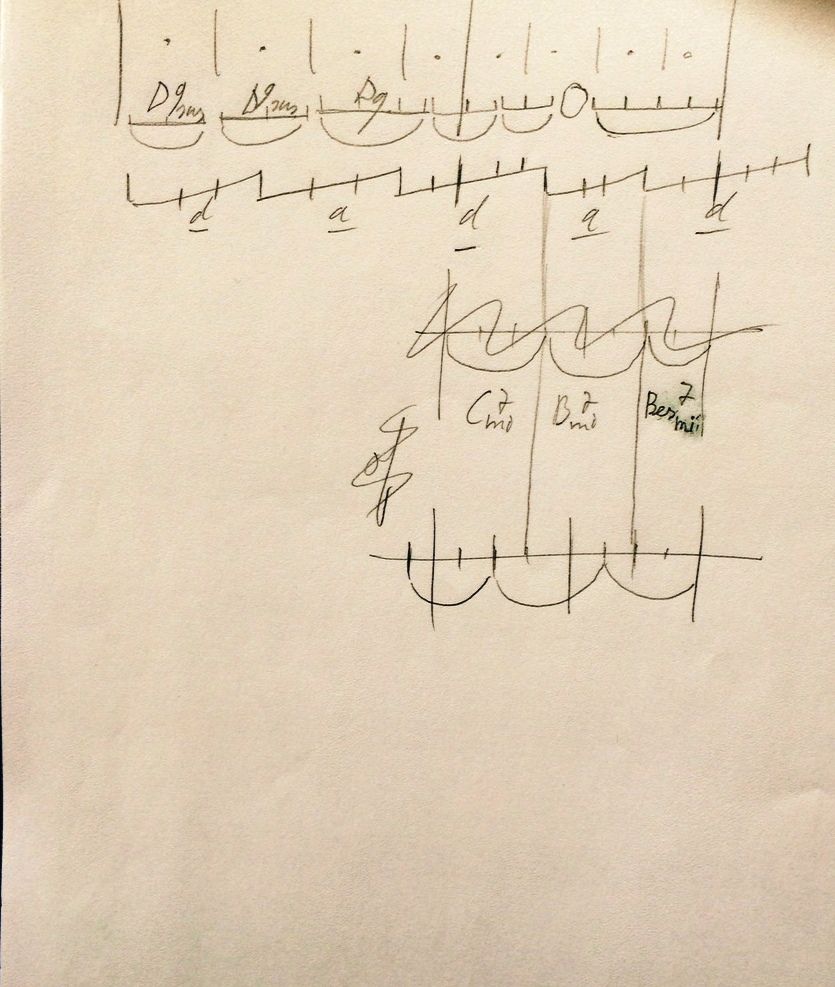 D9sus D9sus D9
d a d a d
C7mi B7mi Bes7mi